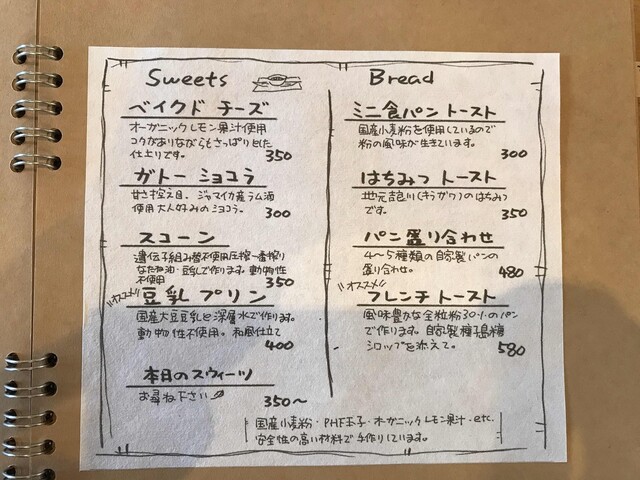 Sweets
ベイクド チーズ
オーガニックレモン果汁使用
コクがありながらもさっぱりとした
仕上りです。 350
ガトー ショコラ
甘さ控え目。ジャマイカ産ラム酒
使用大人好みのショコラ。 300
スコーン
遺伝子組み替不使用圧搾一番搾り
なたね油・豆乳で作ります。動物性
不使用 350
オススメ
豆乳 プリン
国産大豆豆乳と深層水で作ります。
動物性不使用。和風仕立て
400
本日のスウィーツ
お尋ね下さい 350〜
Bread
ミニ食パントースト
国産小麦粉を使用しているので
粉の風味が生きています。
300
はちみつ トースト
地元吉川(キラガワ)のはちみつ
です。 350
パン盛り合わせ
4〜5種類の自家製パンの
盛り合わせ。 480
オススメ
フレンチトースト
風味豊かな全粒粉30%のパン
で作ります。自家製種子島糖
シロップを添えて。 580
国産小麦粉・PHF玉子・オーガニックレモン果汁・etc.
安全性の高い材料で手作りしています。